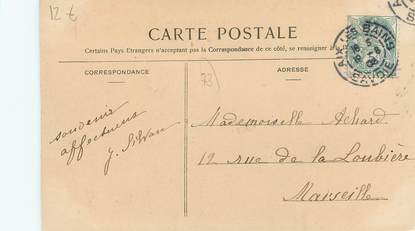 12 €
CARTE POSTALE
Certains Pays Etrangers n'acceptant pas la Correspondance de ce côté, se renseigner à la
CORRESPONDANCE
ADRESSE
73
AIX-LES-BAINS
SAVOIE
souvenir
affectueux
Mademoiselle Achard
12 rue de la Loubière
Marseille